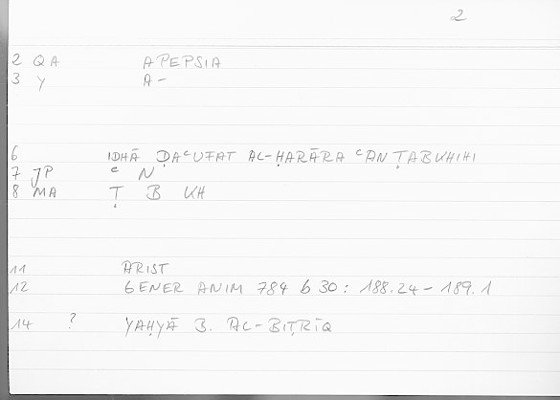 2
2 QA APEPSIA
3 Y A-
6 IDHĀ ḌAᶜUFAT AL-ḤARĀRA ᶜAN ṬABKHIHI
7 JP ᶜ N
8 MA Ṭ B KH
11 ARIST
12 GENER ANIM 784 b 30: 188.24-189.1
14 ? YAḤYĀ B. AL-BIṬRĪQ